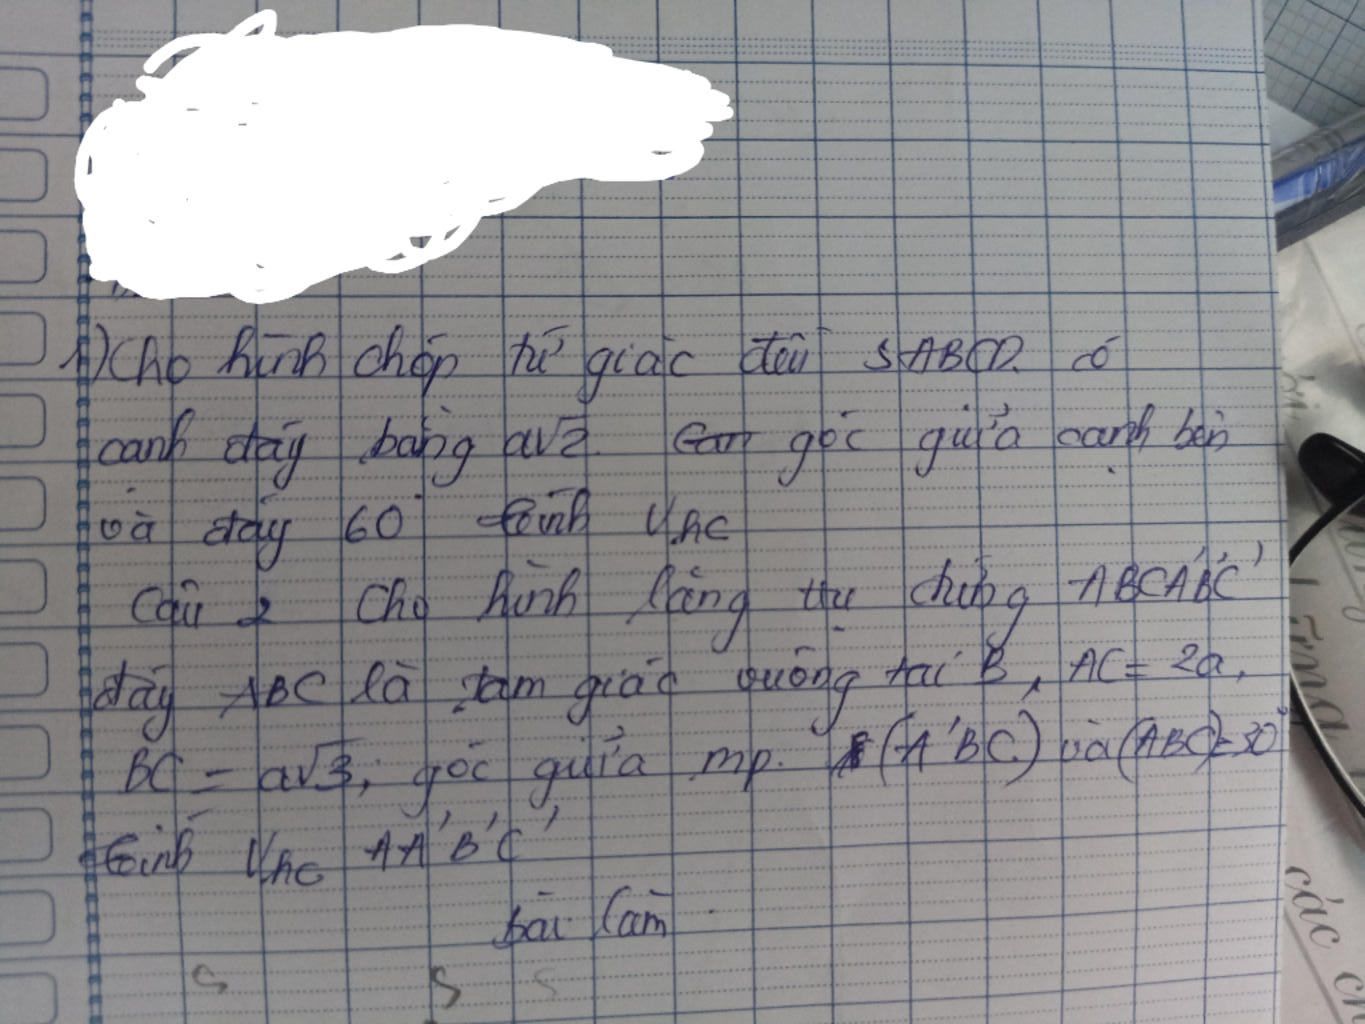 1) Cho hình chóp tứ giác đều SABCD. có
cạnh đáy bằng a√2. góc giữa cạnh bên
và đáy 60° tính V_hc
Câu 2 Cho hình lăng trụ đứng ABCA'B'C'
đáy ABC là tam giác vuông tại B, AC = 2a,
BC = a√3, góc giữa mp. (A'BC) và (ABC) = 30°
tính V_hc AA'B'C'
bài làm
S S S
các